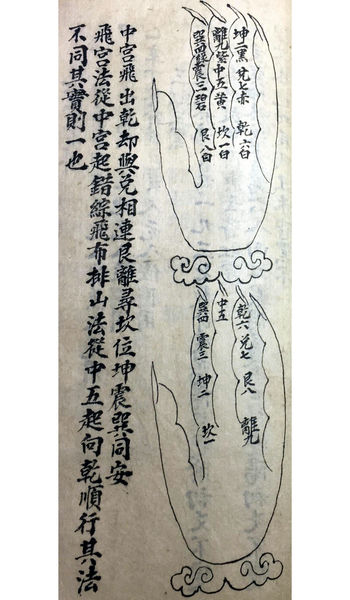 坤二黑 兌七赤 乾六白
離九紫 中五黃 坎一白
巽四綠 震三碧 艮八白
乾六 兌七 艮八 離九
中五
巽四 震三 坤二 坎一
中宮飛出乾却與兌相連艮離尋坎位坤震巽同安
飛宮法從中宮起錯綜飛布排山法從中五起向乾順行其法
不同其實則一也